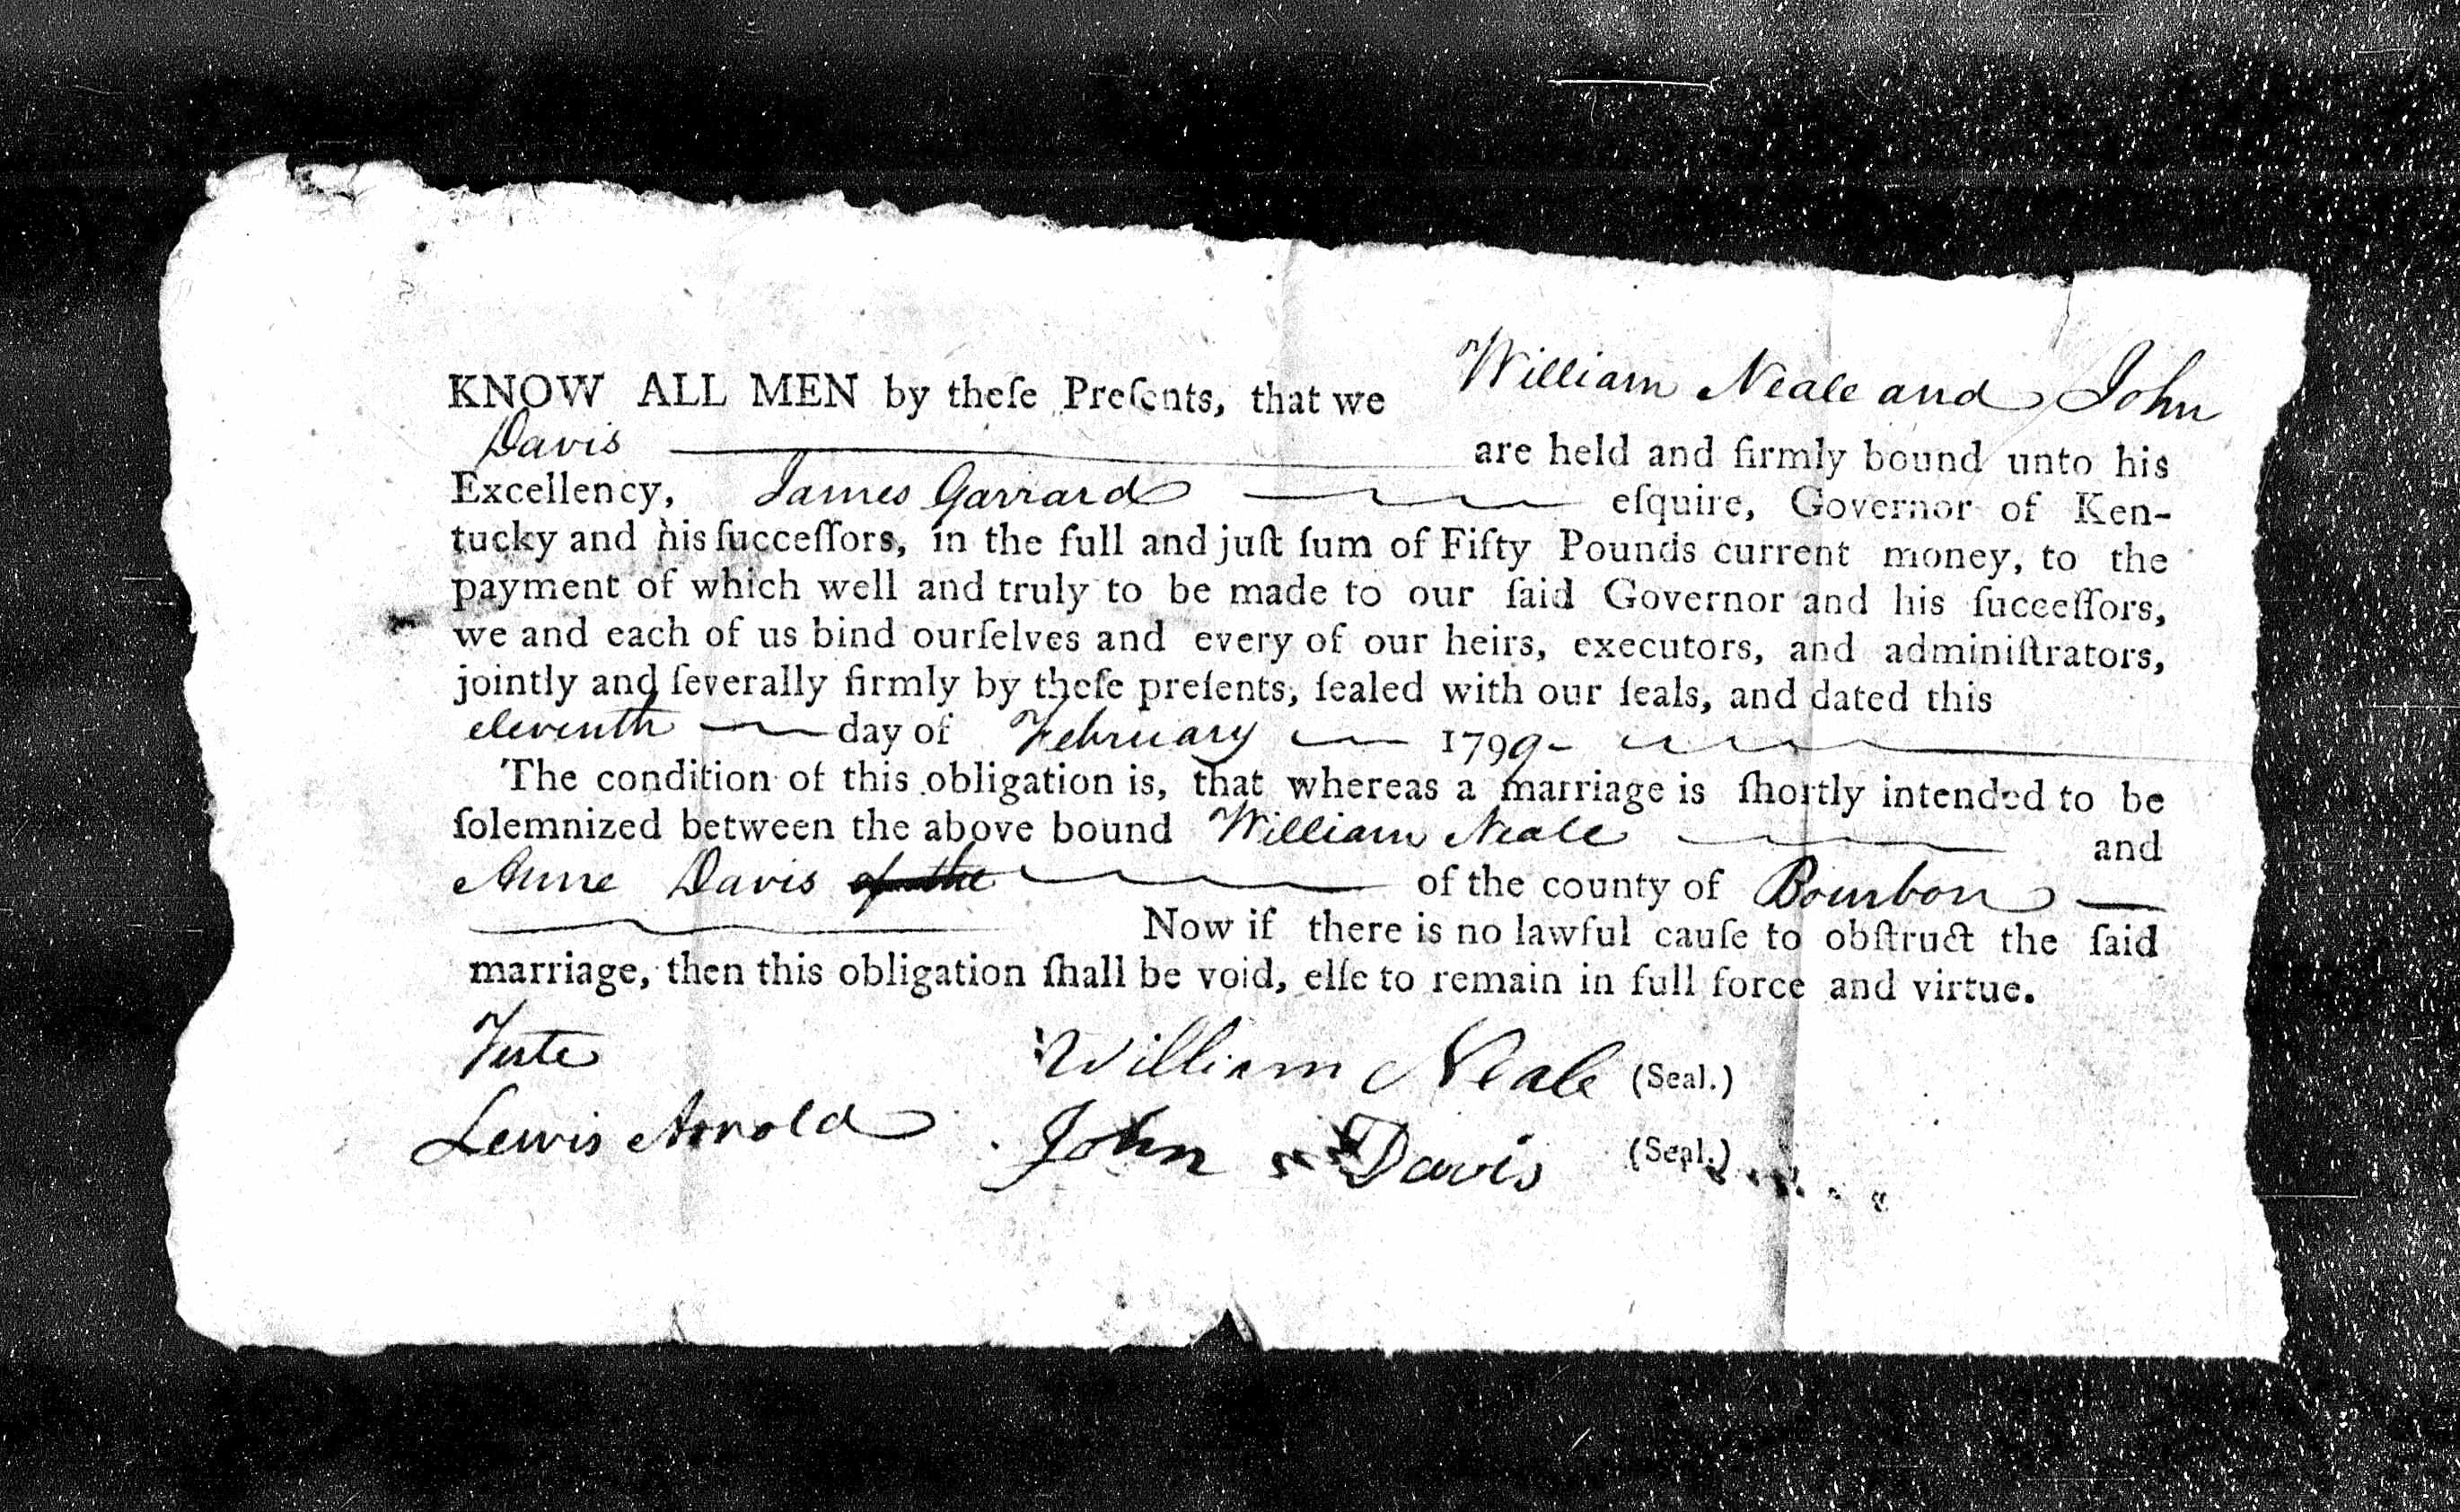 KNOW ALL MEN by theſe Preſents, that we William Neale and John
Davis are held and firmly bound unto his
Excellency, James Garrard eſquire, Governor of Ken-
tucky and his ſucceſſors, in the full and juſt ſum of Fifty Pounds current money, to the
payment of which well and truly to be made to our ſaid Governor and his ſucceſſors,
we and each of us bind ourſelves and every of our heirs, executors, and adminiſtrators,
jointly and ſeverally firmly by theſe preſents, ſealed with our ſeals, and dated this
eleventh day of February 1799-
The condition of this obligation is, that whereas a marriage is ſhortly intended to be
ſolemnized between the above bound William Neale and
Anne Davis of the of the county of Bourbon
Now if there is no lawful cauſe to obſtruct the ſaid
marriage, then this obligation ſhall be void, elſe to remain in full force and virtue.
Teste William Neale (Seal.)
Lewis Arnold John Davis (Seal.)